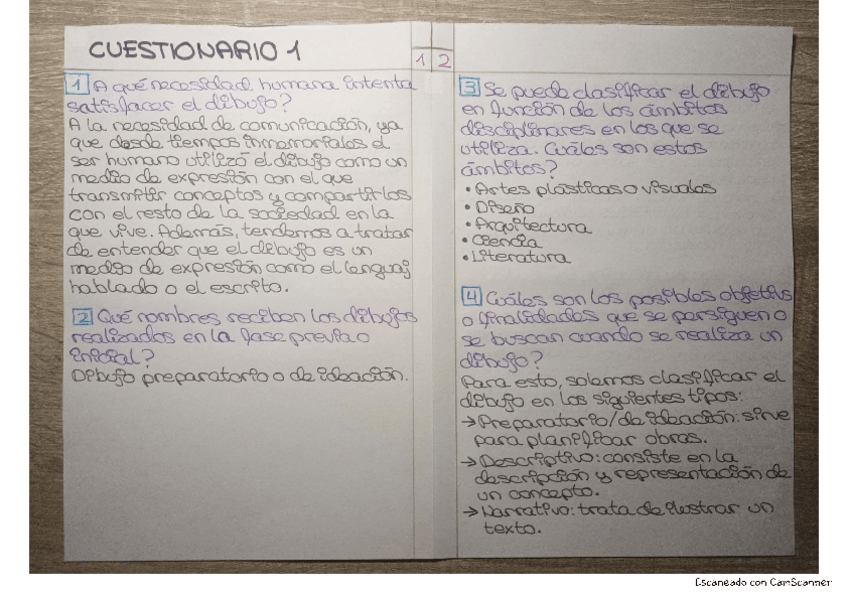 CUESTIONARIO 1
1 2
1 A qué necesidad humana intenta
satisfacer el dibujo?
A la necesidad de comunicación, ya
que desde tiempos inmemoriales el
ser humano utilizó el dibujo como un
medio de expresión con el que
transmitir conceptos y compartirlos
con el resto de la sociedad en la
que vive. Además, tendemos a tratar
de entender que el dibujo es un
medio de expresión como el lenguaj
hablado o el escrito.
2 Qué nombres reciben los dibujos
realizados en la fase previa o
inicial?
Dibujo preparatorio o de ideación.
3 Se puede clasificar el dibujo
en función de los ámbitos
disciplinares en los que se
utiliza. Cuáles son estos
ámbitos?
• Artes plásticas o visuales
• Diseño
• Arquitectura
• Ciencia
• Literatura
4 Cuáles son los posibles objetivs
o finalidades que se persiguen o
se buscan cuando se realiza un
dibujo?
Para esto, solemos clasificar el
dibujo en los siguientes tipos:
→ Preparatorio/de ideación: sirve
para planificar obras.
→ Descriptivo: consiste en la
descripción y representación de
un concepto.
→ Narrativo: trata de ilustrar un
texto.
Escaneado con CamScanner